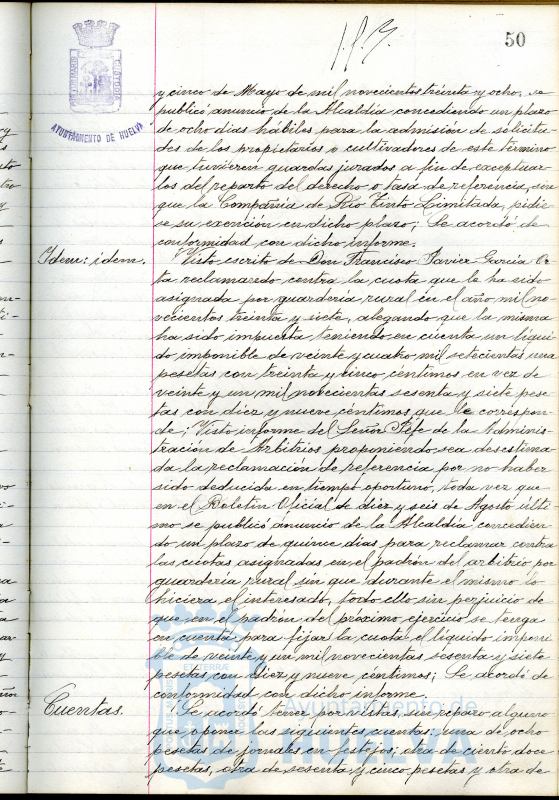 50
AYUNTAMIENTO DE HUELVA
y cinco de Mayo de mil novecientos treinta y ocho, se
publicó anuncio de la Alcaldía concediendo un plazo
de ocho dias hábiles para la admisión de solicitu
des de los propietarios o cultivadores de este término
que tuvieren guardas jurados a fin de exceptuar
los del reparto del derecho o tasa de referencia, sin
que la Compañia de Rio Tinto Limitada, pidie
se su exención en dicho plazo; Se acordó de
conformidad con dicho informe.
Idem: idem.
Visto escrito de Don Francisco Javier Garcia Or
ta reclamando contra la cuota que le ha sido
asignada por guardería rural en el año mil no
vecientos treinta y siete, alegando que la misma
ha sido impuesta teniendo en cuenta un líqui
do imponible de veinte y cuatro mil setecientas una
pesetas con treinta y cinco céntimos en vez de
veinte y un mil novecientas sesenta y siete pese
tas con diez y nueve céntimos que le correspon
de; Visto informe del Señor Jefe de la Adminis
tración de Arbitrios proponiendo sea desestima
da la reclamación de referencia por no haber
sido deducida en tiempo oportuno, toda vez que
en el Boletin Oficial de diez y seis de Agosto últi
mo se publicó anuncio de la Alcaldía concedien
do un plazo de quince dias para reclamar contra
las cuotas asignadas en el padrón del arbitrio por
guardería rural sin que durante el mismo lo
hiciera el interesado, todo ello sin perjuicio de
que en el padron del próximo ejercicio se tenga
en cuenta para fijar la cuota el líquido imponi
ble de veinte y un mil novecientas sesenta y siete
pesetas con diez y nueve céntimos; Se acordó de
conformidad con dicho informe.
Cuentas.
Se acordó tener por vistas, sin reparo alguno
que oponer las siguientes cuentas: una de ocho
pesetas de jornales en festejos, otra de ciento doce
pesetas, otra de sesenta y cinco pesetas y otra de
Ayuntamiento de
HUELVA